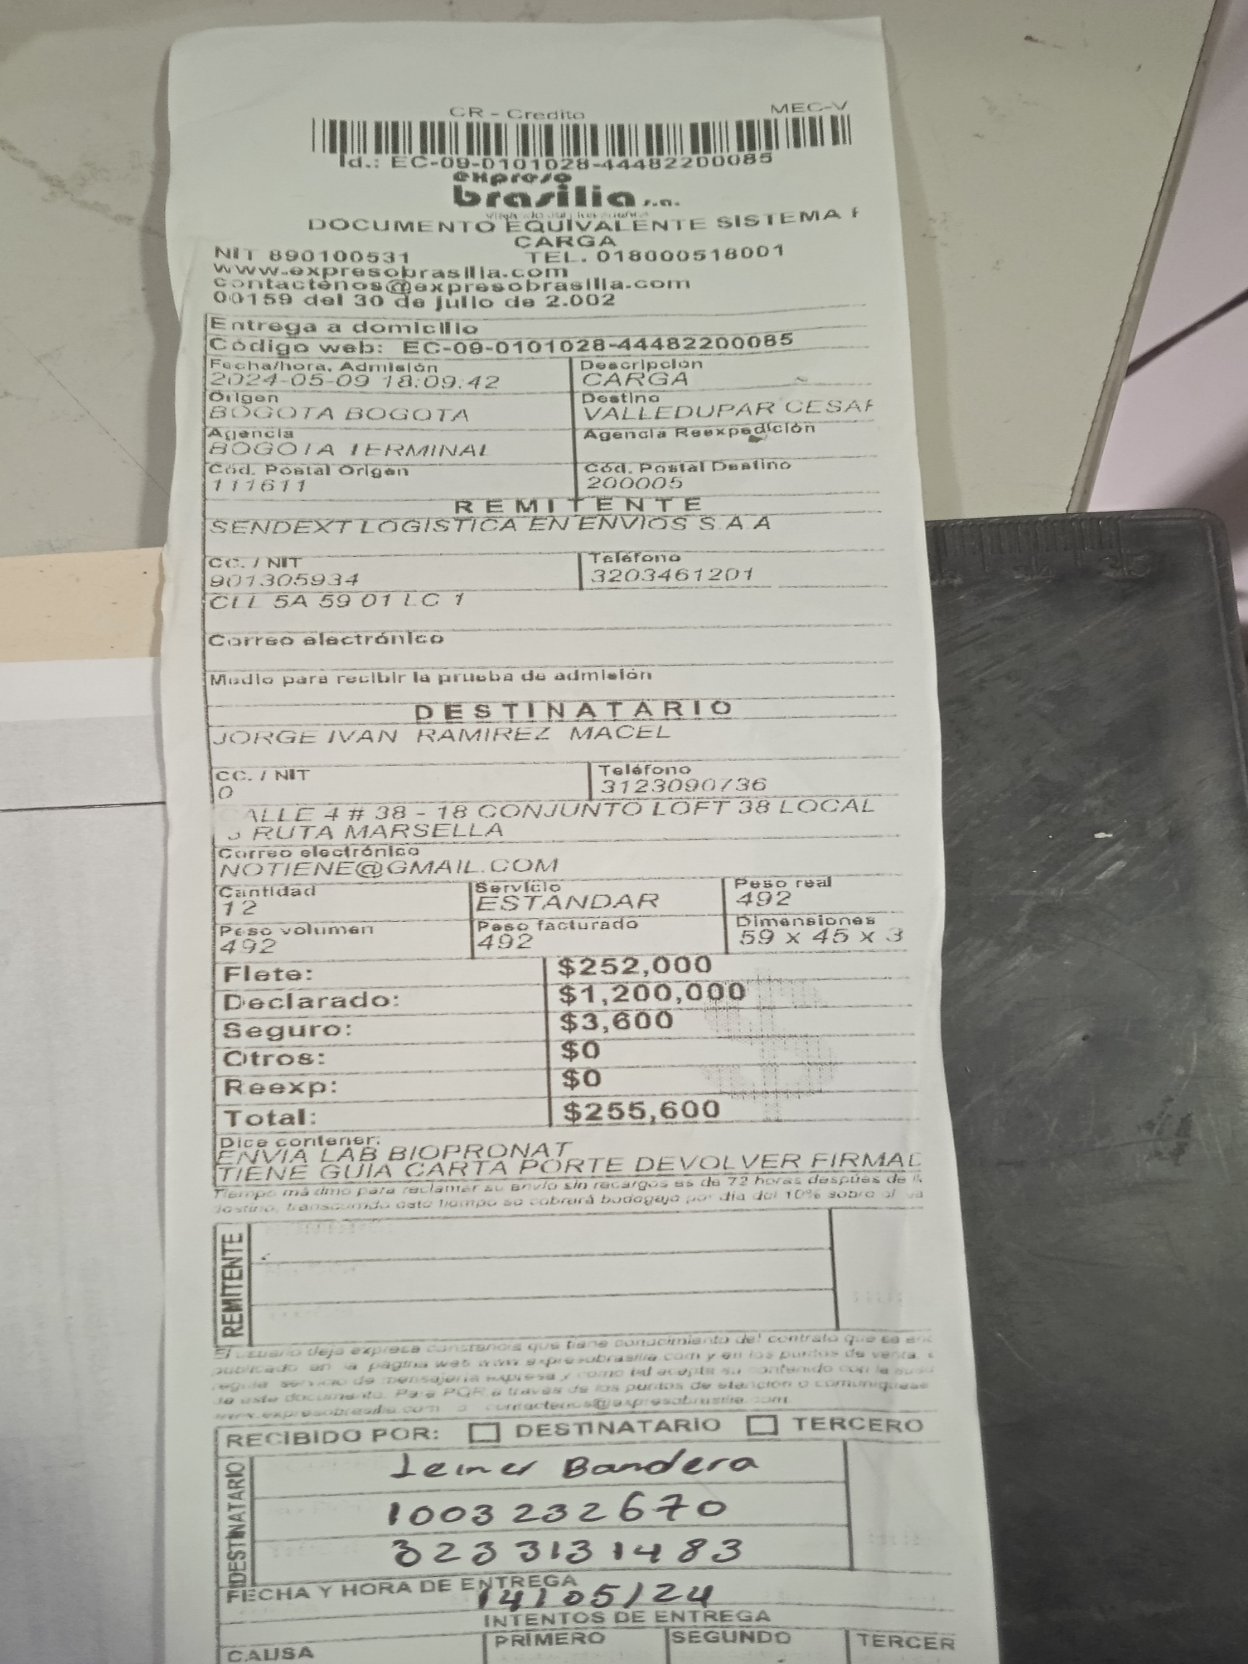 CR - Credito MEC-V
Id.: EC-09-0101028-44482200085
expreso
brasilia s.a.
DOCUMENTO EQUIVALENTE SISTEMA
CARGA
NIT 890100531 TEL. 018000518001
www.expresobrasilia.com
contactenos@expresobrasilia.com
00159 del 30 de julio de 2.002
Entrega a domicilio
Código web: EC-09-0101028-44482200085
Fecha/hora, Admisión Descripción
2024-05-09 18:09:42 CARGA
Origen Destino
BOGOTA BOGOTA VALLEDUPAR CESAR
Agencia Agencia Reexpedición
BOGOTA TERMINAL
Cód. Postal Origen Cód. Postal Destino
111611 200005
REMITENTE
SENDEXT LOGISTICA EN ENVIOS S.A.A
CC. / NIT Teléfono
901305934 3203461201
CLL 5A 59 01 LC 1
Correo electrónico
Medio para recibir la prueba de admisión
DESTINATARIO
JORGE IVAN RAMIREZ MACEL
CC. / NIT Teléfono
0 3123090736
ALLE 4 # 38 - 18 CONJUNTO LOFT 38 LOCAL
RUTA MARSELLA
Correo electrónico
NOTIENE@GMAIL.COM
Cantidad Servicio Peso real
12 ESTANDAR 492
Peso volumen Peso facturado Dimensiones
492 492 59 x 45 x 3
Flete: $252,000
Declarado: $1,200,000
Seguro: $3,600
Otros: $0
Reexp: $0
Total: $255,600
Dice contener:
ENVIA LAB BIOPRONAT
TIENE GUIA CARTA PORTE DEVOLVER FIRMAD
Tiempo máximo para reclamar su envío sin recargos es de 72 horas después de
destino, transcurrido este tiempo se cobrará bodegaje por día del 10% sobre el va
REMITENTE
El usuario deja expresa constancia que tiene conocimiento del contrato que se
publicado en la página web www.expresobrasilia.com y en los puntos de venta,
servicio de mensajería expresa y como tal acepta su contenido con la
de este documento. Para PQR a través de los puntos de atención o comuniquese
www.expresobrasilia.com o contactenos@expresobrasilia.com
RECIBIDO POR: DESTINATARIO TERCERO
DESTINATARIO
Leiner Bandera
1003232670
3233131483
FECHA Y HORA DE ENTREGA
14/05/24
INTENTOS DE ENTREGA
CAUSA PRIMERO SEGUNDO TERCER